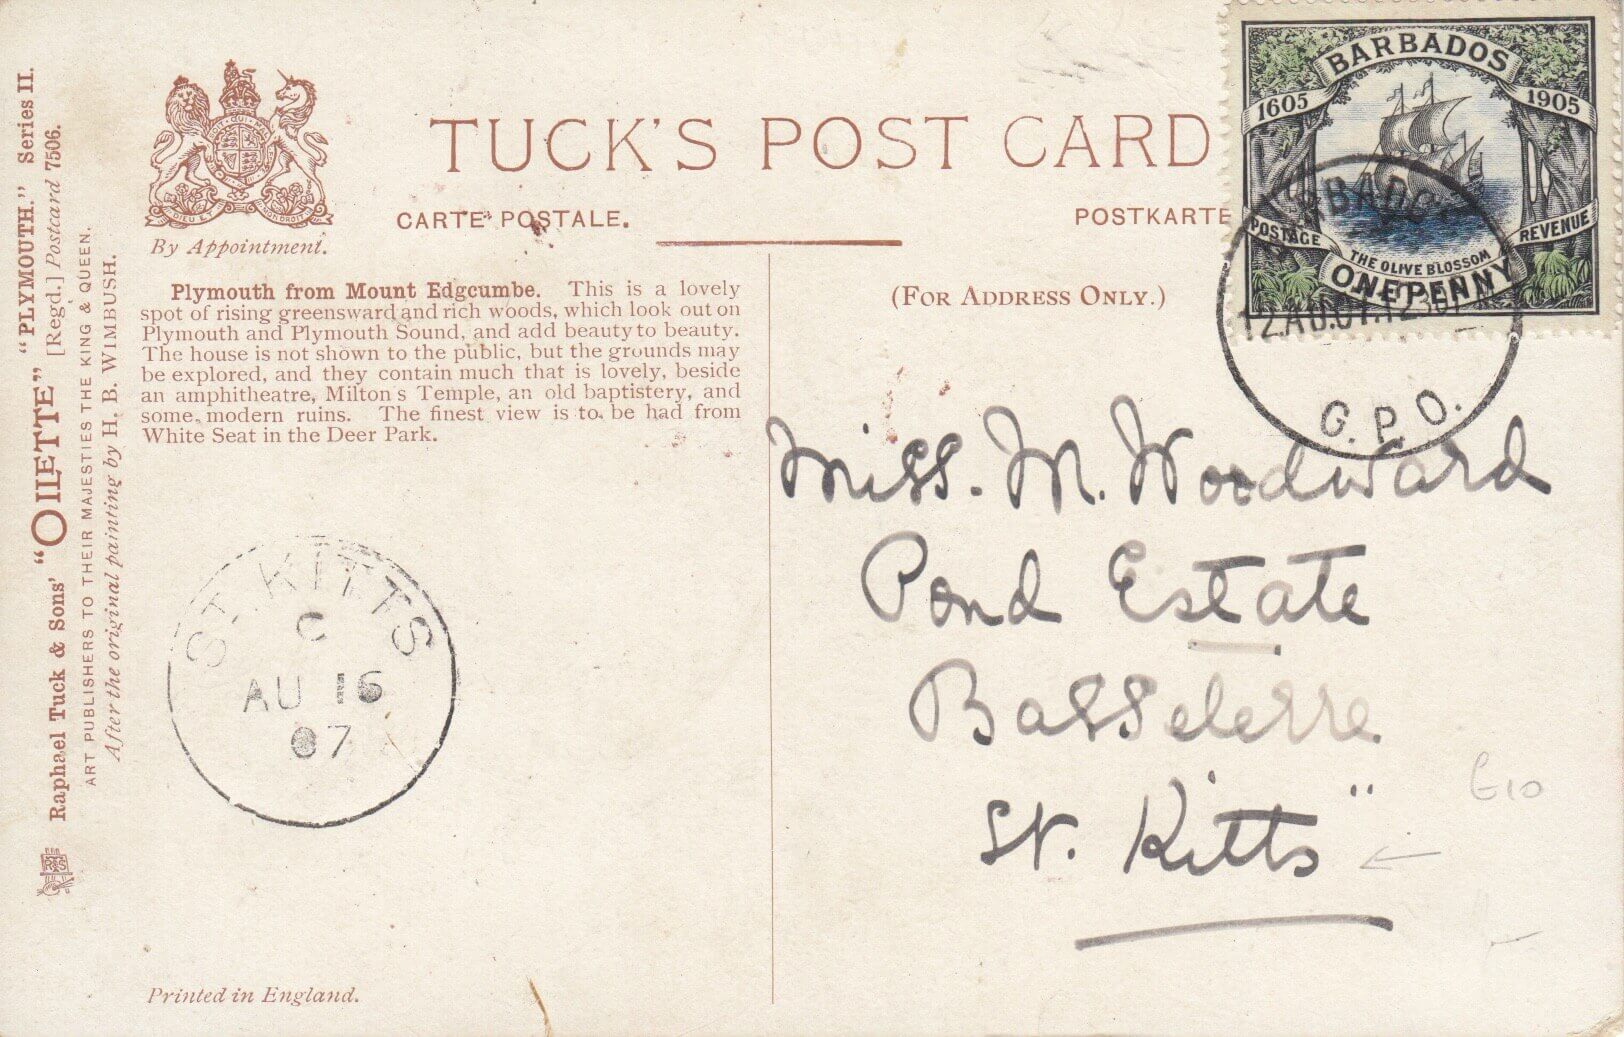 Raphael Tuck & Sons' "OILETTE" "PLYMOUTH." Series II.
[Regd.] Postcard 7506.
ART PUBLISHERS TO THEIR MAJESTIES THE KING & QUEEN.
After the original painting by H. B. WIMBUSH.
DIEU ET MON DROIT
By Appointment.
TUCK'S POST CARD
CARTE POSTALE.
POSTKARTE
BARBADOS
1605 1905
POSTAGE REVENUE
THE OLIVE BLOSSOM
ONE PENNY
G.P.O.
Plymouth from Mount Edgcumbe. This is a lovely
spot of rising greensward and rich woods, which look out on
Plymouth and Plymouth Sound, and add beauty to beauty.
The house is not shown to the public, but the grounds may
be explored, and they contain much that is lovely, beside
an amphitheatre, Milton's Temple, an old baptistery, and
some modern ruins. The finest view is to be had from
White Seat in the Deer Park.
(FOR ADDRESS ONLY.)
Miss. M. Woodward
Pond Estate
Basseterre
St. Kitts "
£10
ST. KITTS
C
AU 16
07
RTS
Printed in England.